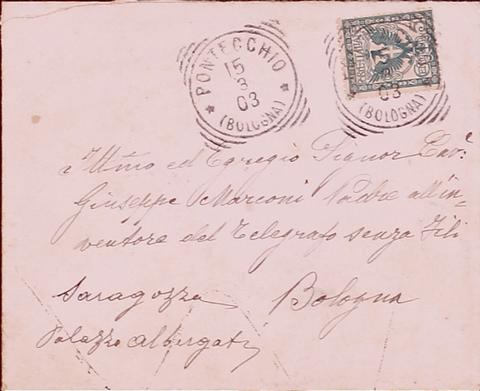 PONTECCHIO
15
3
03
(BOLOGNA)
03
(BOLOGNA)
Illmo ed Egregio Signor Cav:
Giuseppe Marconi Padre all'in=
ventore del Telegrafo senza Fili
Saragozza Bologna
Palazzo Albergati